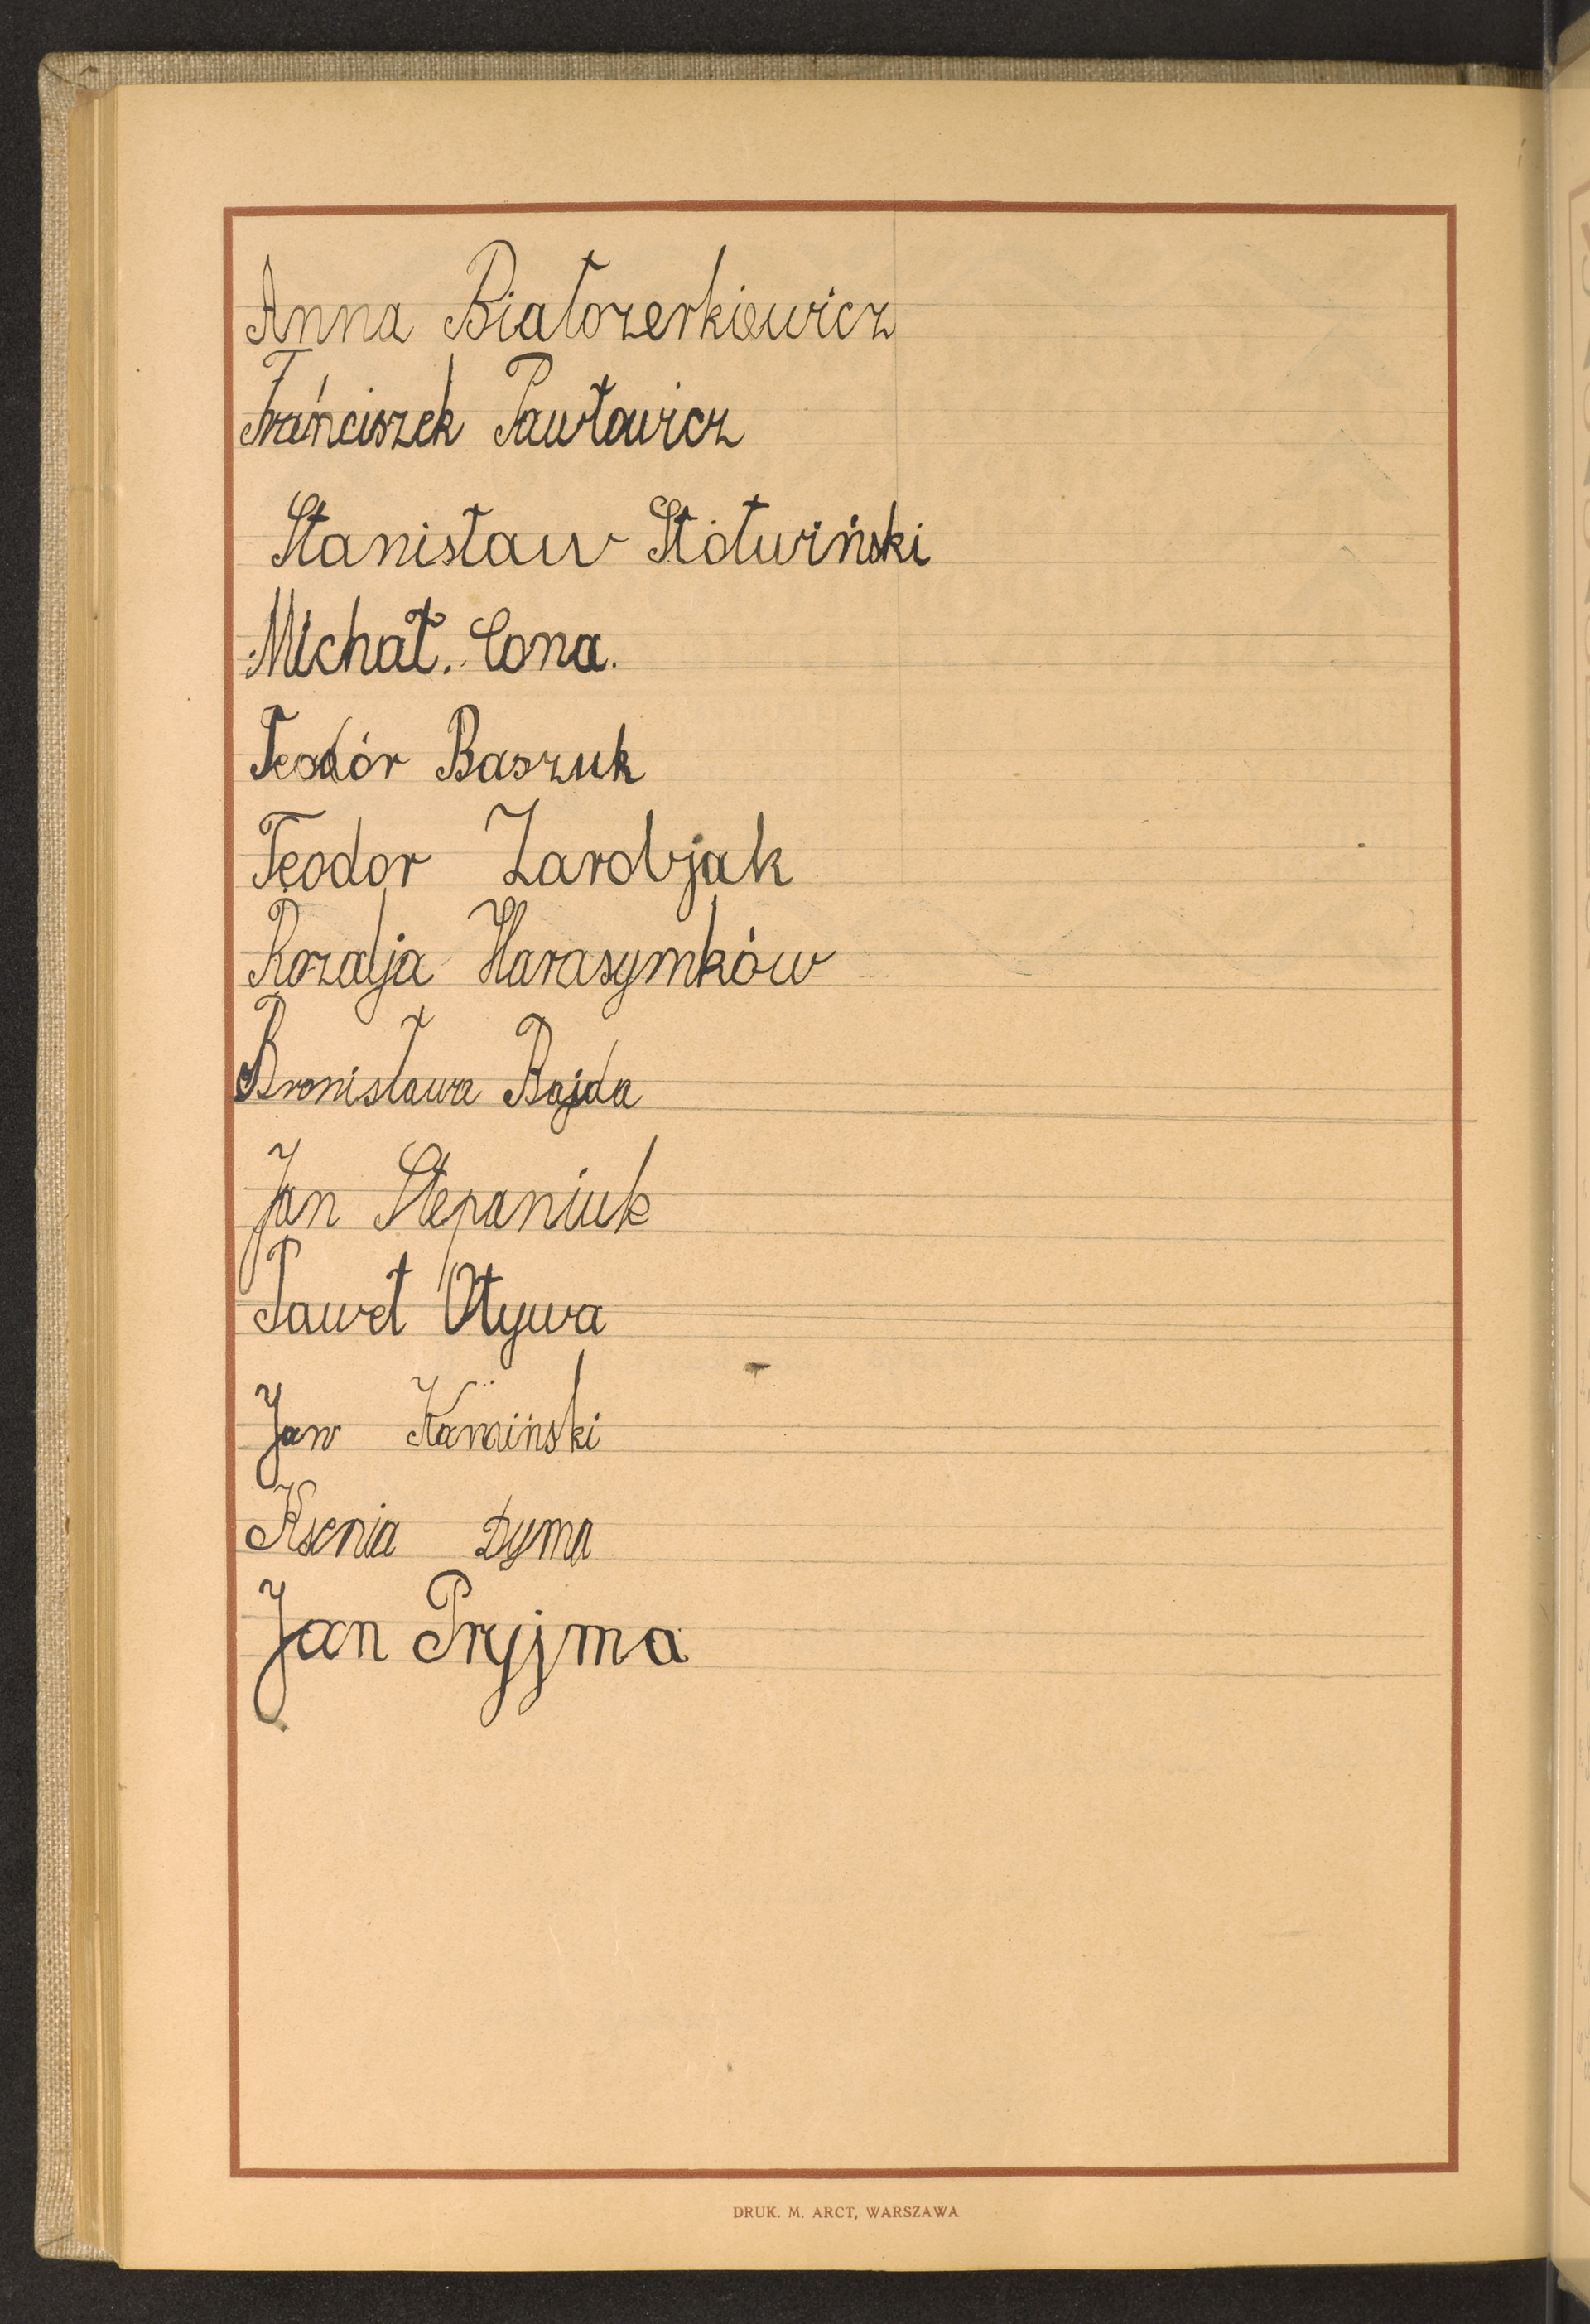 Anna Białozerkiewicz
Fráńciszek Pawłowicz
Stanisław Stótwiński
Michał. Cona.
Teodór Baszuk
Teodor Zarobjak
Rozalja Harasymków
Bronisława Bajda
Jan Stepaniuk
Paweł Otywa
Jan Kamiński
Ksenia Dyma
Jan Pryjma
DRUK. M. ARCT, WARSZAWA